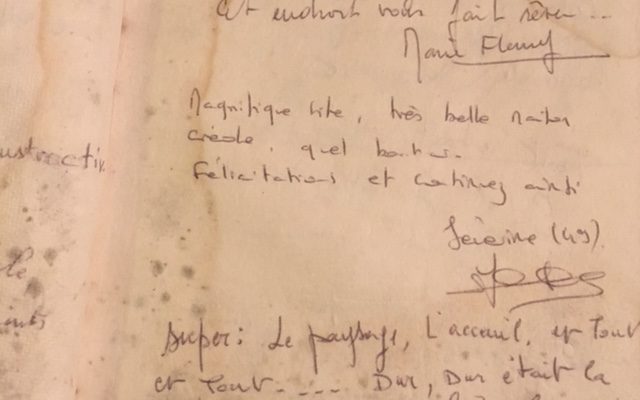 Cet endroit vous fait rêver ...
Marie Fleury
ustructiv
Magnifique site, très belle maison
créole, quel bonheur.
Félicitations et continuez ainsi
Séverine (49)
le
Super: Le paysage, L'acceuil, et Tout
et Tout ---- Dur, Dur était la